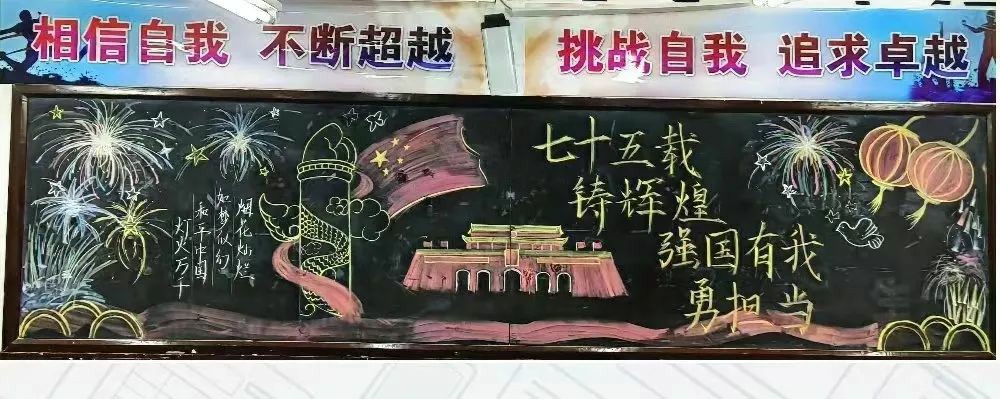 相信自我 不断超越
挑战自我 追求卓越
烟花灿烂
如梦似幻
和平中国
灯火万千
七十五载
铸辉煌
强国有我
勇担当